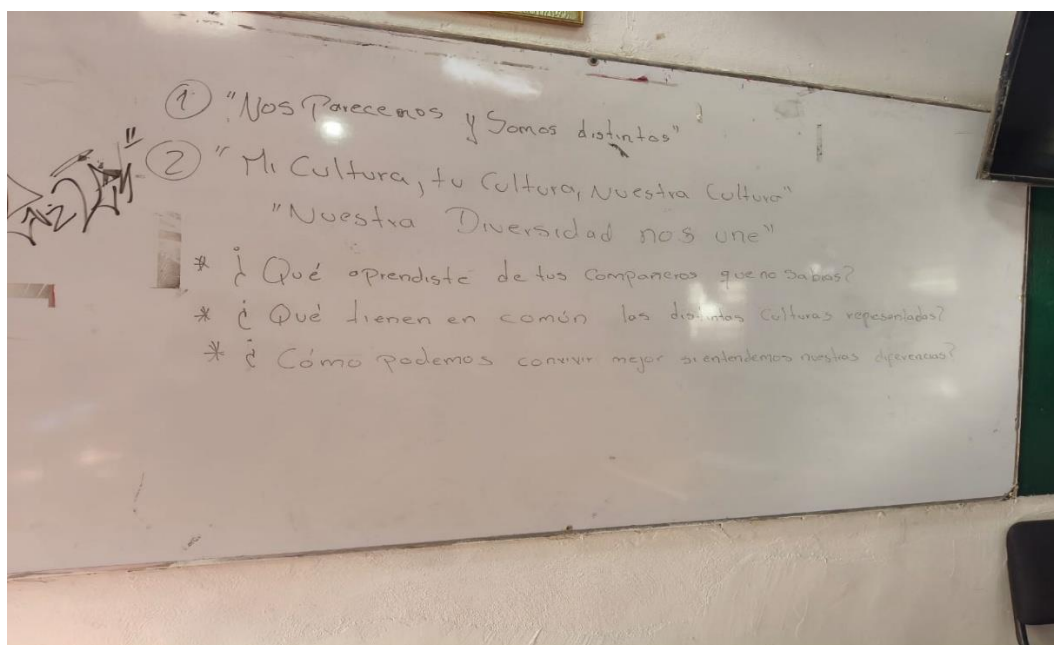 ① "Nos Parecemos y Somos distintos"
② "Mi Cultura, tu Cultura, Nuestra Cultura"
"Nuestra Diversidad nos une"
* ¿Qué aprendiste de tus compañeros que no sabias?
* ¿Qué tienen en común las distintas Culturas representadas?
* ¿Cómo podemos convivir mejor si entendemos nuestras diferencias?